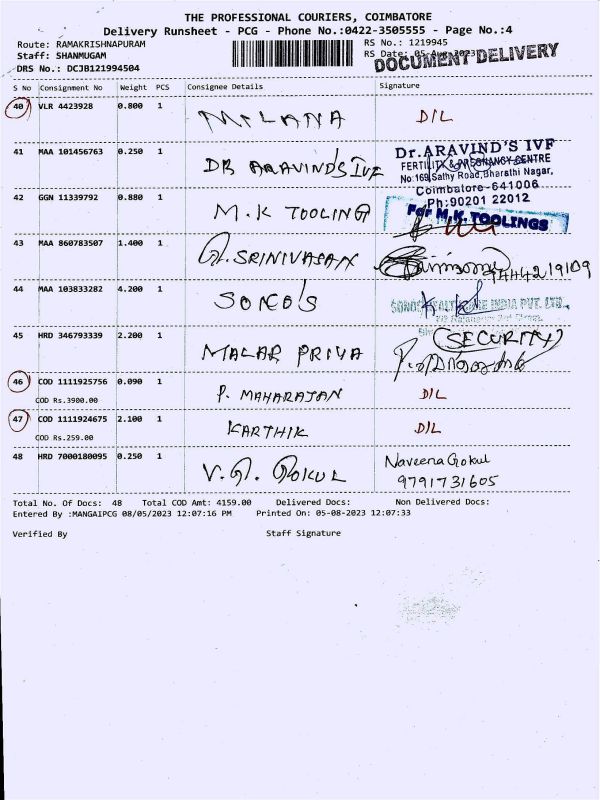 THE PROFESSIONAL COURIERS, COIMBATORE
Delivery Runsheet - PCG - Phone No.:0422-3505555 - Page No.:4
Route: RAMAKRISHNAPURAM
RS No.: 1219945
Staff: SHANMUGAM
RS Date: 05-Aug-2023
DOCUMENT DELIVERY
DRS No.: DCJB121994504
S No Consignment No Weight PCS Consignee Details Signature
40 VLR 4423928 0.800 1 MILANA D/L
41 MAA 101456763 0.250 1 DR ARAVIND'S IVF
Dr. ARAVIND'S IVF
FERTILITY & PREGNANCY CENTRE
No:169, Sathy Road, Bharathi Nagar,
Coimbatore-641006
Ph:90201 22012
42 GGN 11339792 0.880 1 M.K TOOLING
For M.K. TOOLINGS
43 MAA 860783507 1.400 1 G. SRINIVASAN
9444219109
44 MAA 103833282 4.200 1 SONO'S
INDIA PVT. LTD.,
45 HRD 346793339 2.200 1 MALAR PRIYA
(SECURITY)
46 COD 1111925756 0.090 1 P. MAHARAJAN D/L
COD Rs.3900.00
47 COD 1111924675 2.100 1 KARTHIK D/L
COD Rs.259.00
48 HRD 7000180095 0.250 1 V.G. GOKUL Naveena Gokul
9791731605
Total No. Of Docs: 48 Total COD Amt: 4159.00 Delivered Docs: Non Delivered Docs:
Entered By :MANGAIPCG 08/05/2023 12:07:16 PM Printed On: 05-08-2023 12:07:33
Verified By Staff Signature